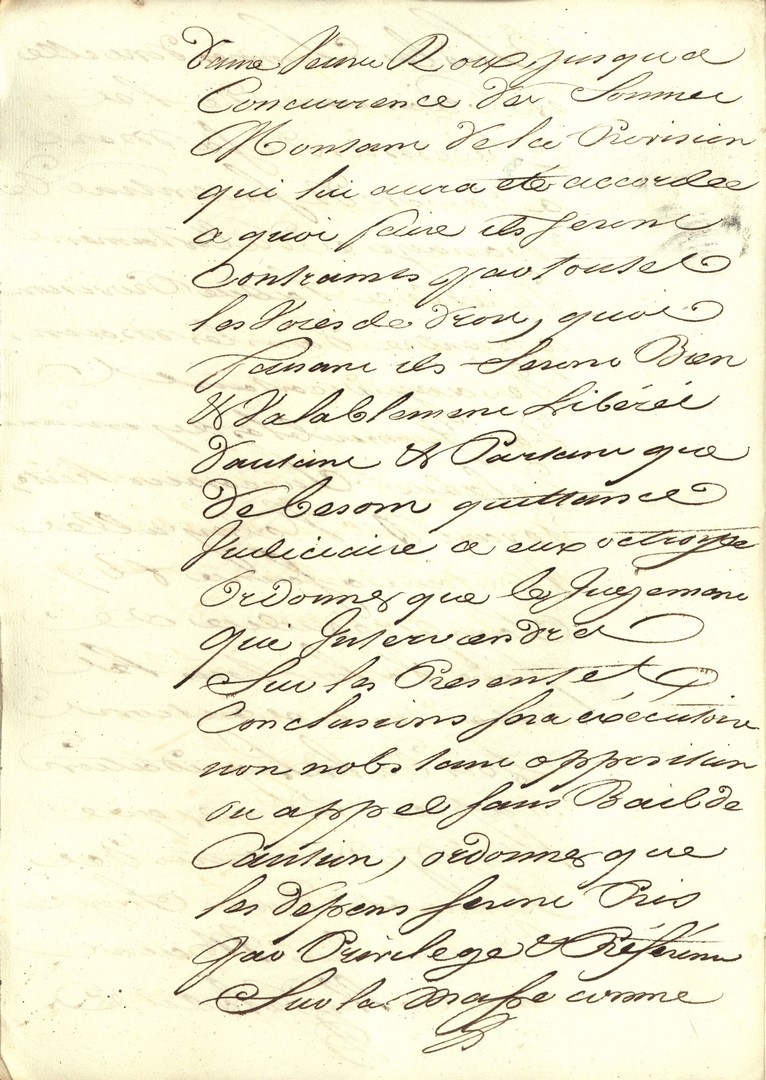 dame Veuve Roux, jusqu'a
Concurrence des Sommes
Montant de la Provision
qui lui aura été accordée
a quoi faire ils seront
Contraints par toutes
les Voies de droit, quoi
faisant ils seront Bien
& Valablement Libérés
d'autant & Partant que
de besoin quittance
Judiciaire a eux octroyée
Ordonner que le Jugement
qui Interviendra
Sur les Presentes
Conclusions sera exécutoire
non nobstant opposition
ou appel sans Bail de
Caution, ordonner que
les depens seront Pris
par Privilege & Préférence
Sur la masse comme